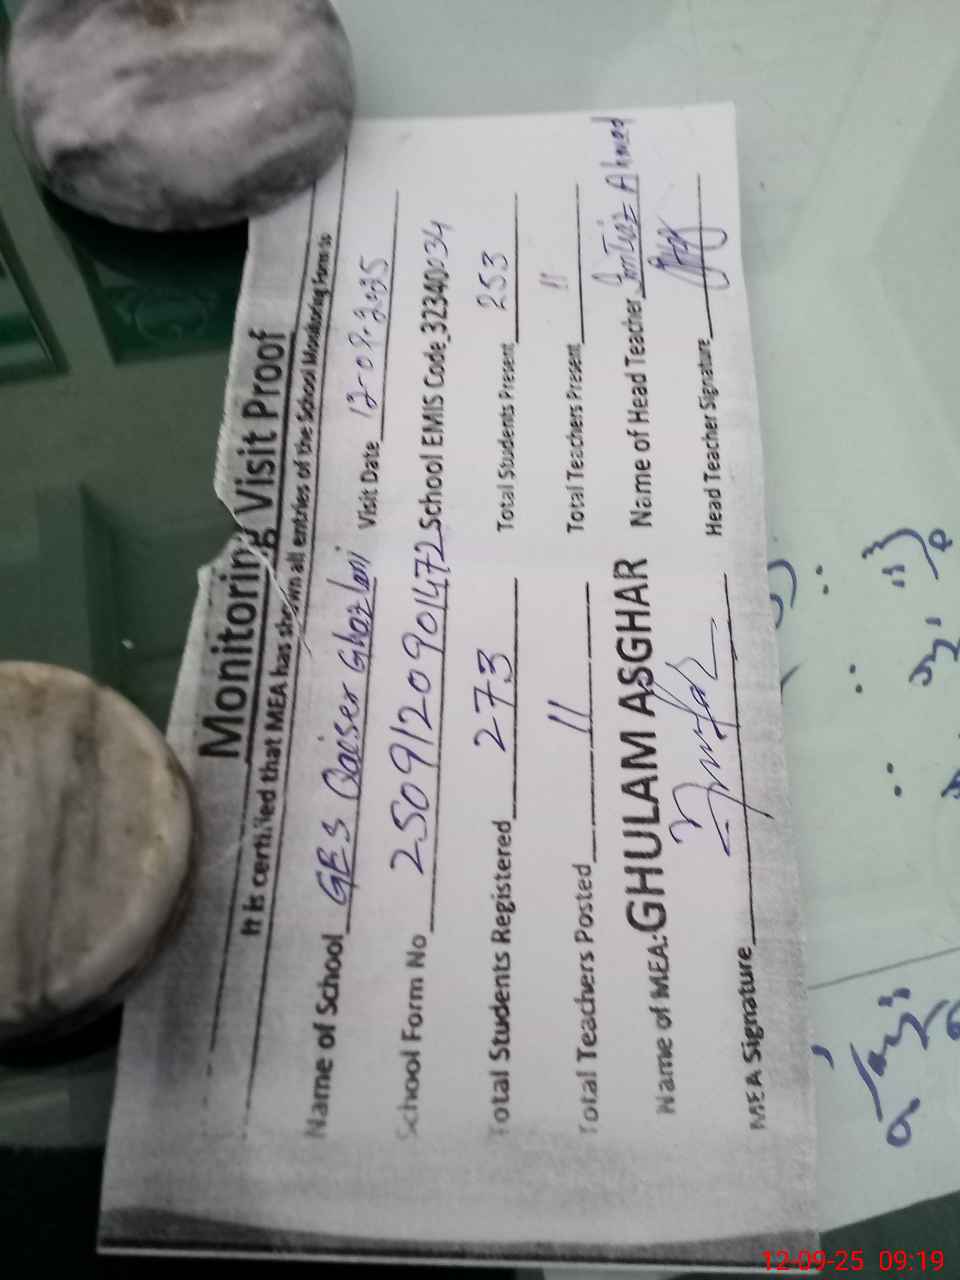 Monitoring Visit Proof
It is certified that MEA has shown all entries of the School Monitoring Form to
Name of School GES Qaiser Ghazlani Visit Date 12-09-2025
School Form No 2509120901472 School EMIS Code 32340034
Total Students Registered 273 Total Students Present 253
Total Teachers Posted 11 Total Teachers Present 11
Name of MEA: GHULAM ASGHAR Name of Head Teacher Imtiaz Ahmed
MEA Signature Head Teacher Signature
12-09-25 09:19